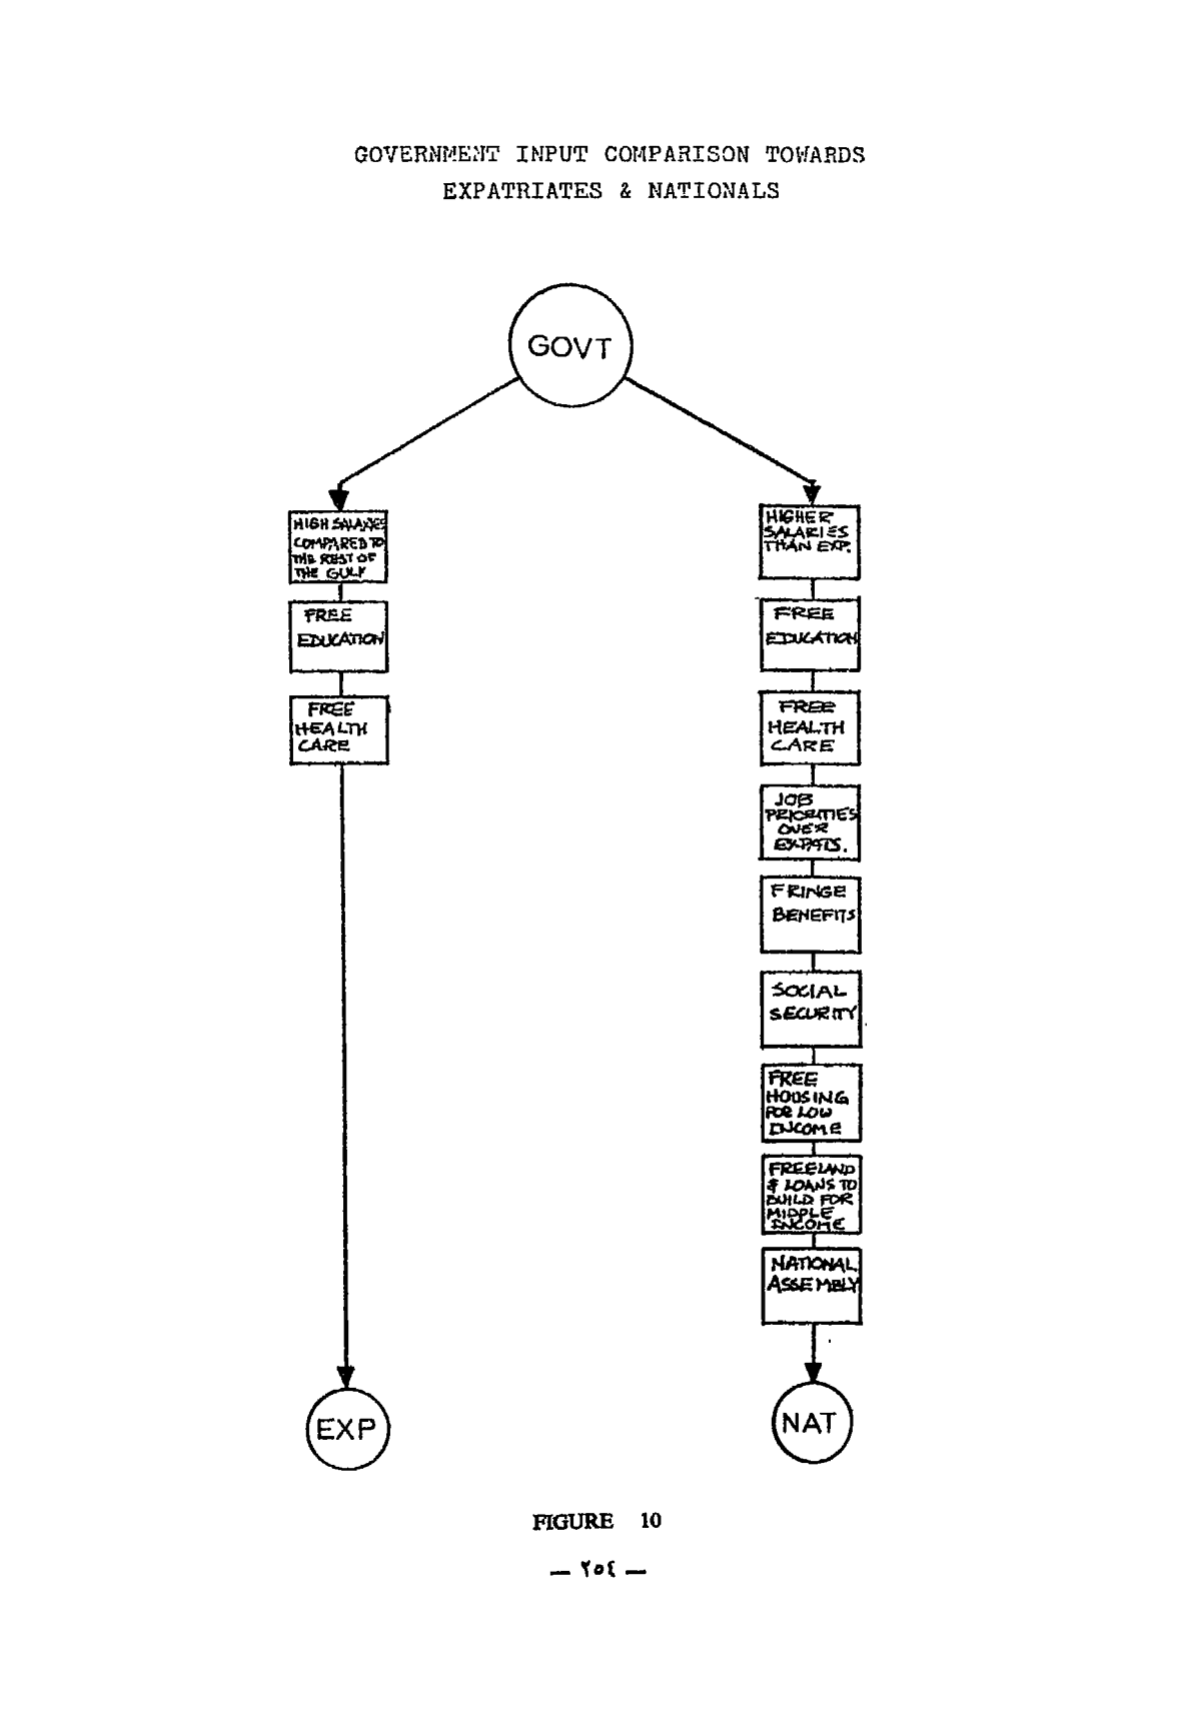 GOVERNMENT INPUT COMPARISON TOWARDS
EXPATRIATES & NATIONALS
GOVT
HIGH SALARIES
COMPARED TO
THE REST OF
THE GULF
FREE
EDUCATION
FREE
HEALTH
CARE
EXP
HIGHER
SALARIES
THAN EXP.
FREE
EDUCATION
FREE
HEALTH
CARE
JOB
PRIORITIES
OVER
EXPATS.
FRINGE
BENEFITS
SOCIAL
SECURITY
FREE
HOUSING
FOR LOW
INCOME
FREE LAND
& LOANS TO
BUILD FOR
MIDDLE
INCOME
NATIONAL
ASSEMBLY
NAT
FIGURE 10
— ٢٥٤ —